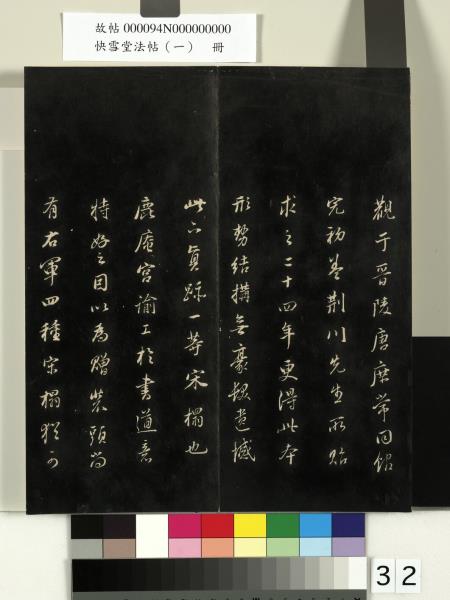 故帖 000094N000000000
快雪堂法帖(一) 冊
觀于晉陵唐庶常同館
宛初蓋荊川先生所貽
求之二十四年更得此本
形勢結搆無豪髮遺憾
此下真跡一等宋榻也
鹿庵宮諭工於書道意
特好之因以為贈裝頭尚
有右軍四種宋榻猶可
32